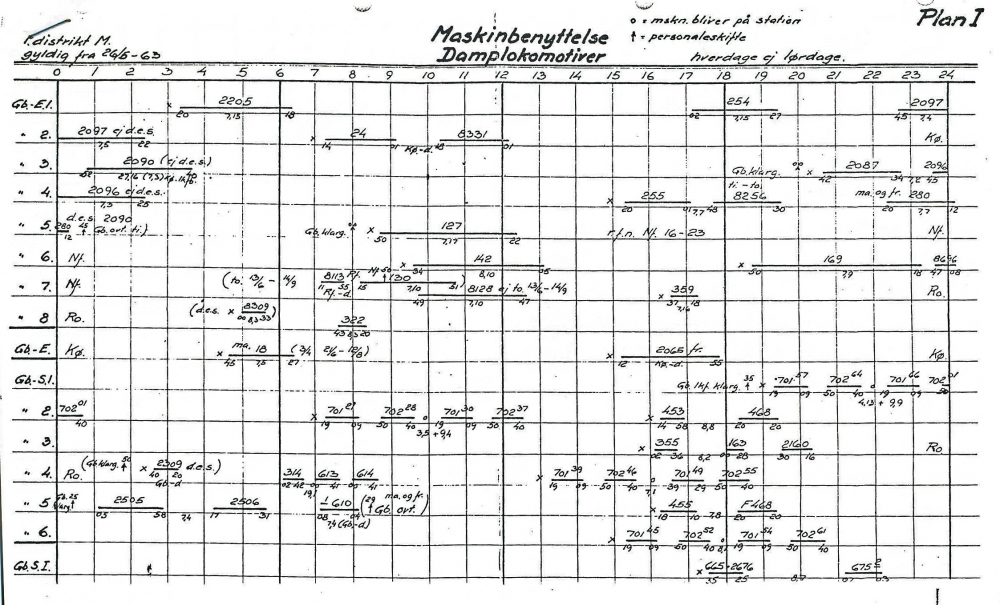 o = mskn. bliver på station
Plan I
Maskinbenyttelse
↑ = personaleskifte
1. distrikt M.
gyldig fra 26/5-63
Damplokomotiver
hverdage ej lørdage.
0 1 2 3 4 5 6 7 8 9 10 11 12 13 14 15 16 17 18 19 20 21 22 23 24
Gb.-E.1. x 2205 254 2097
20 7,15 18 02 7,15 27 45 7,4
" 2. 2097 ej d.e.s. x 24 8331 Kø.
7,5 22 14 01 Kø.-d. 18 01
" 3. 2090 (ej d.e.s.) Gb. klarg. oo x 2087 2096
52 42 34 7,2 45
" 4. 2096 ej d.e.s. x 255 ti.-to. 8256 ma. og fr. 280
7,3 25 20 01 7,7 48 30 20 7,7 12
" 5. 280 d.e.s. 2090 Gb. klarg. oo x 127 r.f.n. Nf. 16-23 Nf.
12 Gb. ovt. ti.) 50 7,17 22
" 6. Nf. x 142 x 169 8696
34 8,10 05 50 7,9 18 47 08
" 7. Nf. (to. 13/6 - 14/9 8113 Rf. Nf 50 (30 8128 ej to. 13/6-14/9 x 359 Ro.
11 55 Rf.-d. 15 7,10 31) 49 7,10 47 37 18 7,16
" 8 Ro. (d.e.s. x 8309 322
00 8,3 33) 43 8,3 20
Gb.-E. Kø. x ma. 18 (3/4 21/6-12/8) x 2065 fr. Kø.
45 7,5 27 12 Kø.-d. 55
Gb.-S.1. Gb. lkf. klarg. 35 ↑ x 701 57 702 64 o 701 66 702 01
19 09 50 40 19 09 50
4,13 + 9,9
" 2. 702 01 x 701 21 702 28 o 701 30 702 37 x 453 468
40 19 09 50 40 19 09 50 40 14 58 8,8 20 20
3,5 + 9,4
" 3. x 355 163 2160 Ro.
02 36 8,2 00 28 30 16
" 4. Ro. (Gb. klarg. 50 ↑ x 2309 d.e.s.) 314 613 614 x 701 39 702 46 o 701 49 702 55
40 20 Gb.-d 02 42 00 41 00 41 19 09 50 40 7,1 39 29 50 40
" 5 Gb. 25 klarg ↑ 2505 2506 610 (29 ma. og fr. ↑ Gb. ovt.) x 455 F468
03 58 7,4 17 31 08 04 7,4 (Gb.-d) 18 10 7,8 20 20
" 6. x 701 45 702 52 o 701 54 702 61
19 09 50 40 19 09 50 40
Gb. S. I. x 665-2676 675
35 25